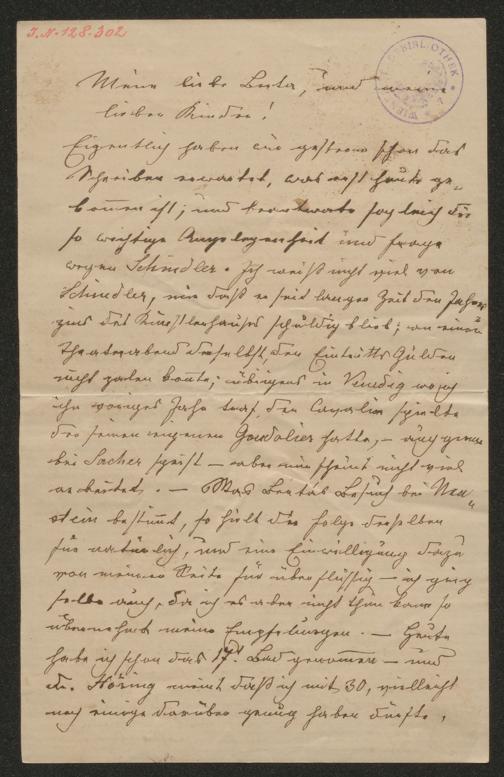 I.N. 128.302
WIENER STADTBIBLIOTHEK
Meine liebe Berta, und meine
lieben Kinder!
Eigentlich haben wir gestern schon das
Schreiben erwartet, was erst heute ge-
kommen ist; und beantworte sogleich die
so wichtige Angelegenheit und Frage
wegen Schindler. Ich weiß nicht viel von
Schindler, nur daß er seit langer Zeit den Jahres
zins des Künstlerhauses schuldig blieb; an einem
Theaterabend daselbst, den Eintritts Gulden
nicht zalen konte; übrigens in Venedig wo ich
ihn voriges Jahr traf, den Cavalier spielte
der seinen eigenen Gondolier hatte, – auch gerne
bei Sacher speist – aber nun scheint nicht viel
arbeitet. – Was Bertas Besuch bei Neu
stein bestimt, so hielt die Folge desselben
für natürlich, und eine Einwilligung dazu
von meiner Seite für überflüssig – ich ging
selbst auch, da ich es aber nicht thun kann, so
meine Empfelungen. – Heute
habe ich schon das 17t. Bad genommen – und
Dr. Höring meint daß ich mit 30, vielleicht
noch einige darüber genug haben dürfte,